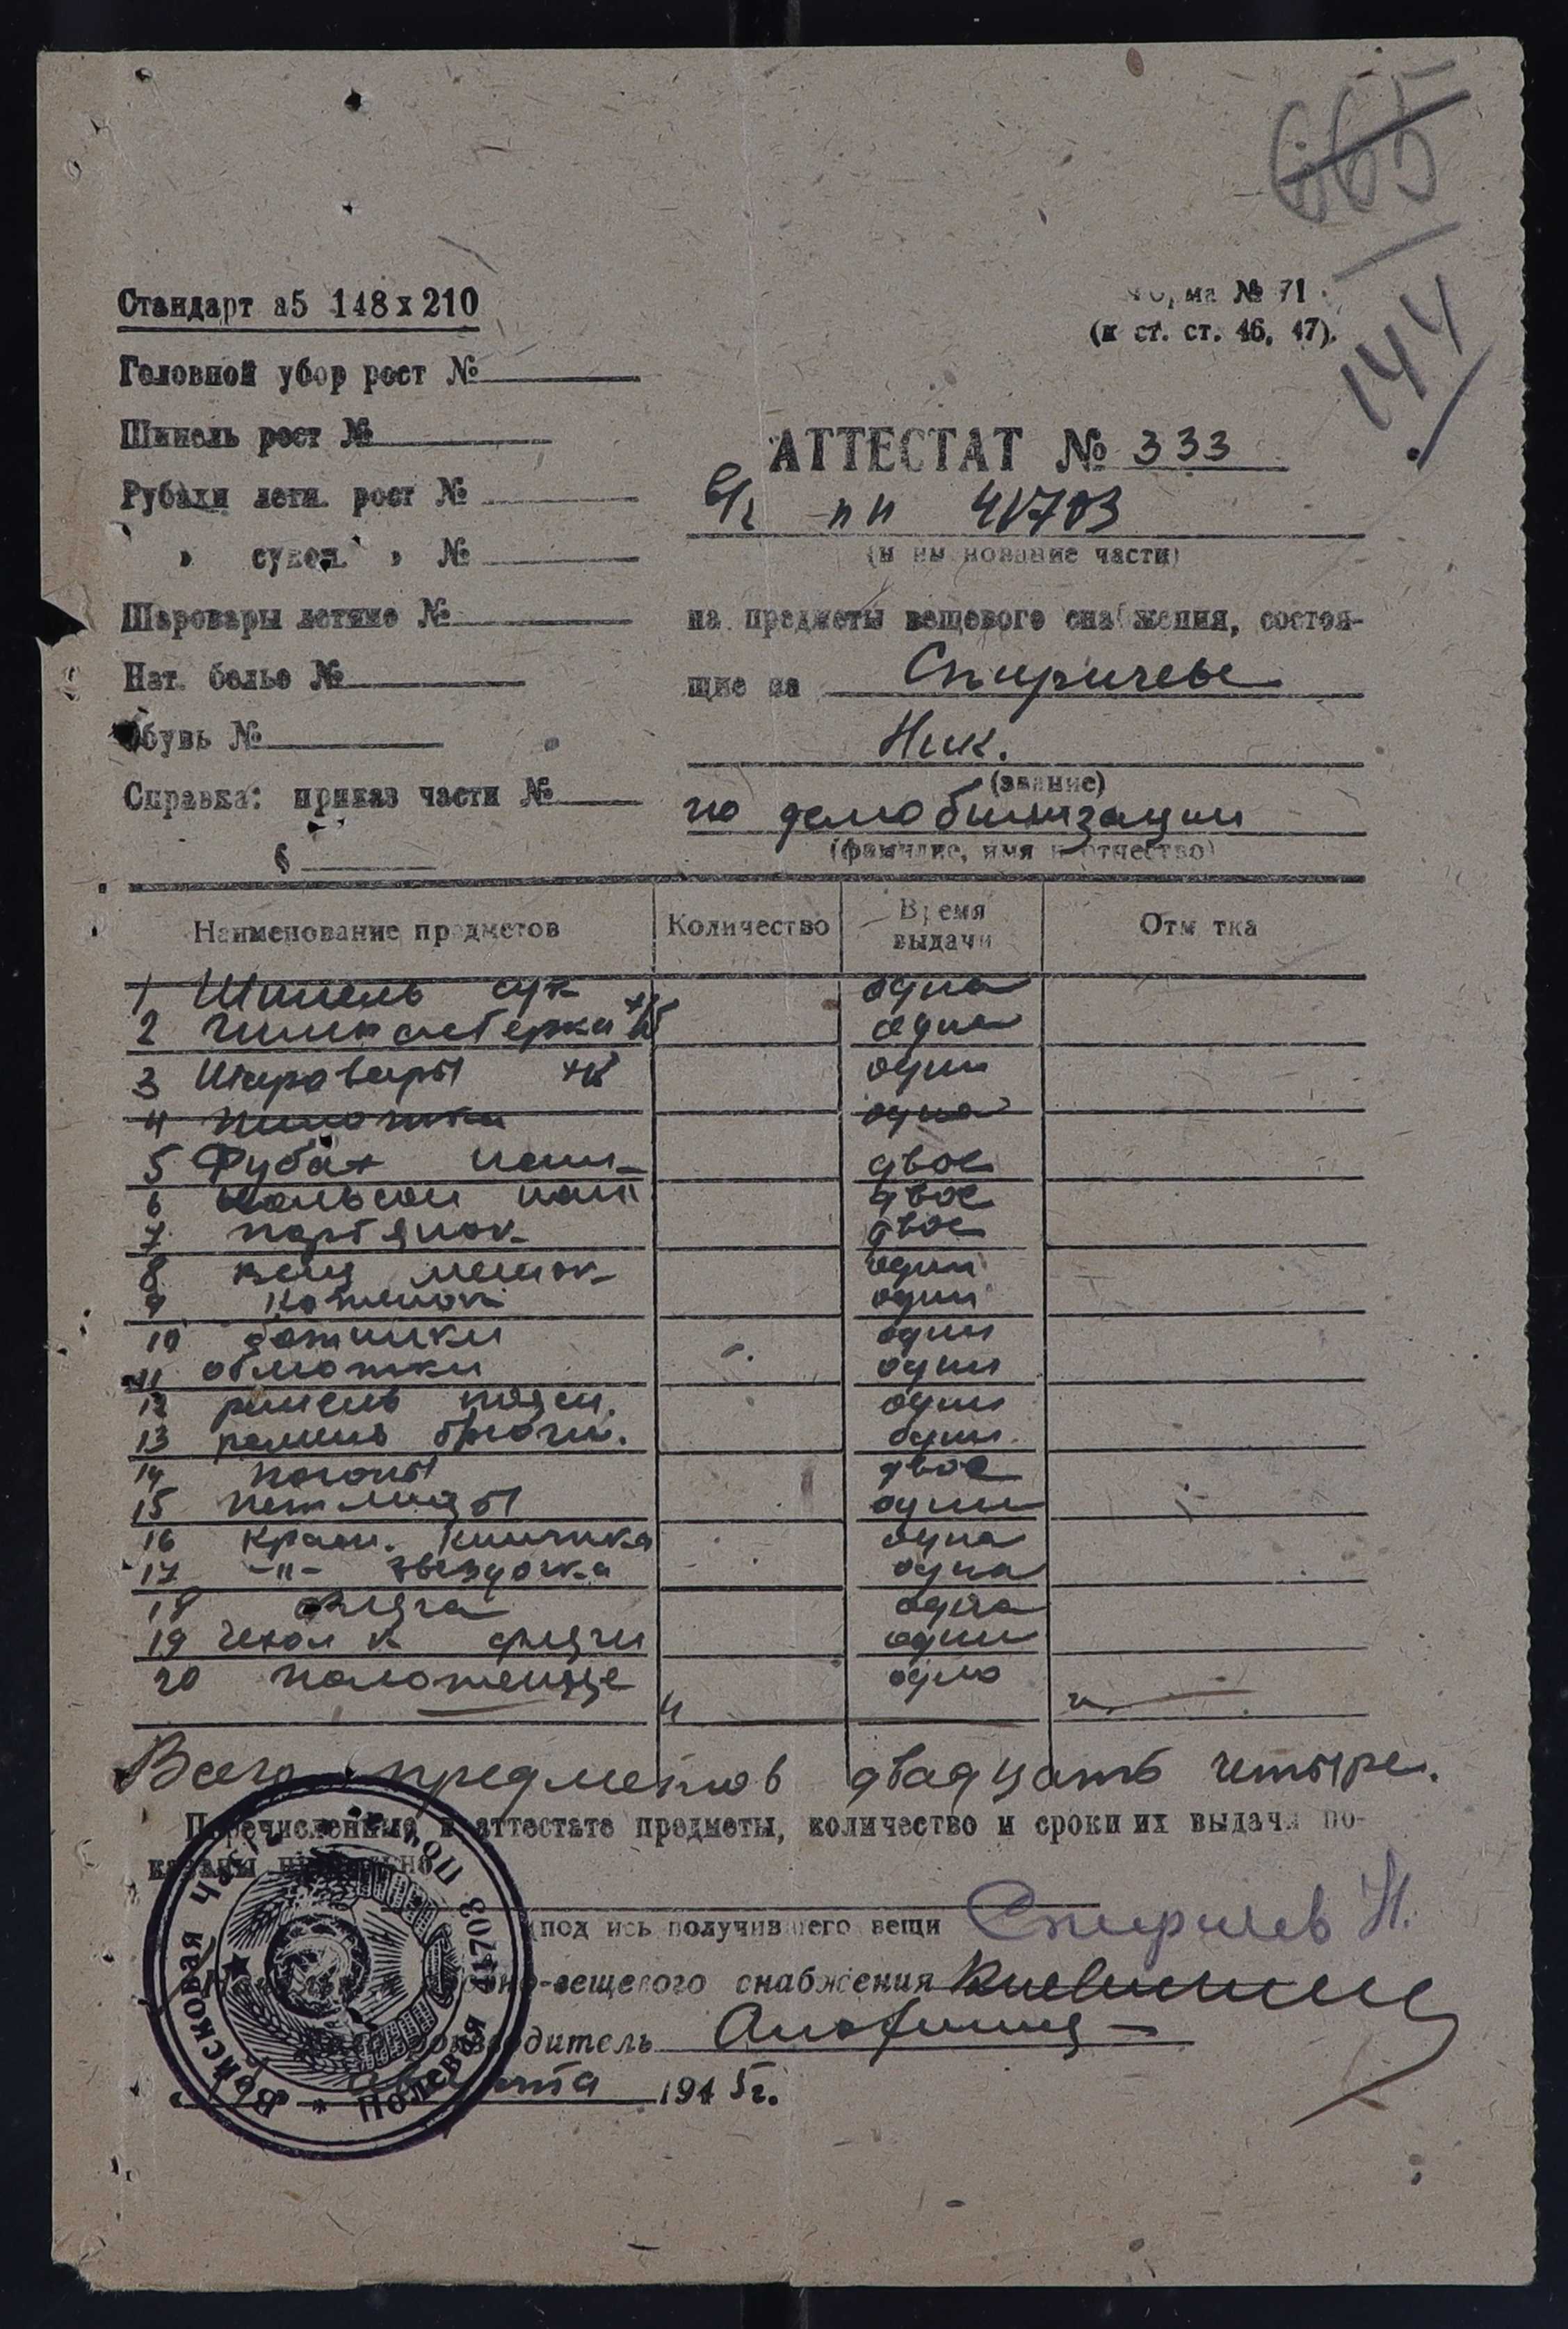 665
144
Стандарт а5 148х210
Форма № 71
(к ст. ст. 46, 47).
Головной убор рост №
Шинель рост №
Рубахи летн. рост №
" сукон. " №
Шаровары летние №
Нат. белье №
Обувь №
Справка: приказ части №
§
АТТЕСТАТ № 333
в/ч пп 41703
(наименование части)
на предметы вещевого снабжения, состоя-
щие за
Ник.
(звание)
по демобилизации
(фамилие, имя и отчество)
Наименование предметов Количество Время выдачи Отметка
1 Шинель одна
2 Гимнастерка х/б одна
3 Шаровары х/б один
4 Пилотка одна
5 Рубах двое
6 Кальсон двое
7 портянок двое
8 вещ мешок один
9 Котелок один
10 ботинки один
11 обмотки один
12 ремень поясн. один
13 ремень брючн. один
14 погоны двое
15 петлицы один
16 одна
17 -"- звездочка одна
18 фляга одна
19 Чехол к фляги один
20 полотенце одно
Всего предметов двадцать четыре.
Перечисленные в аттестате предметы, количество и сроки их выдачи по-
казаны правильно
(подпись получившего вещи
но-вещевого снабжения
Делопроизводитель
августа 1945г.
Войсковая Часть * Полевая Почта 41703 *